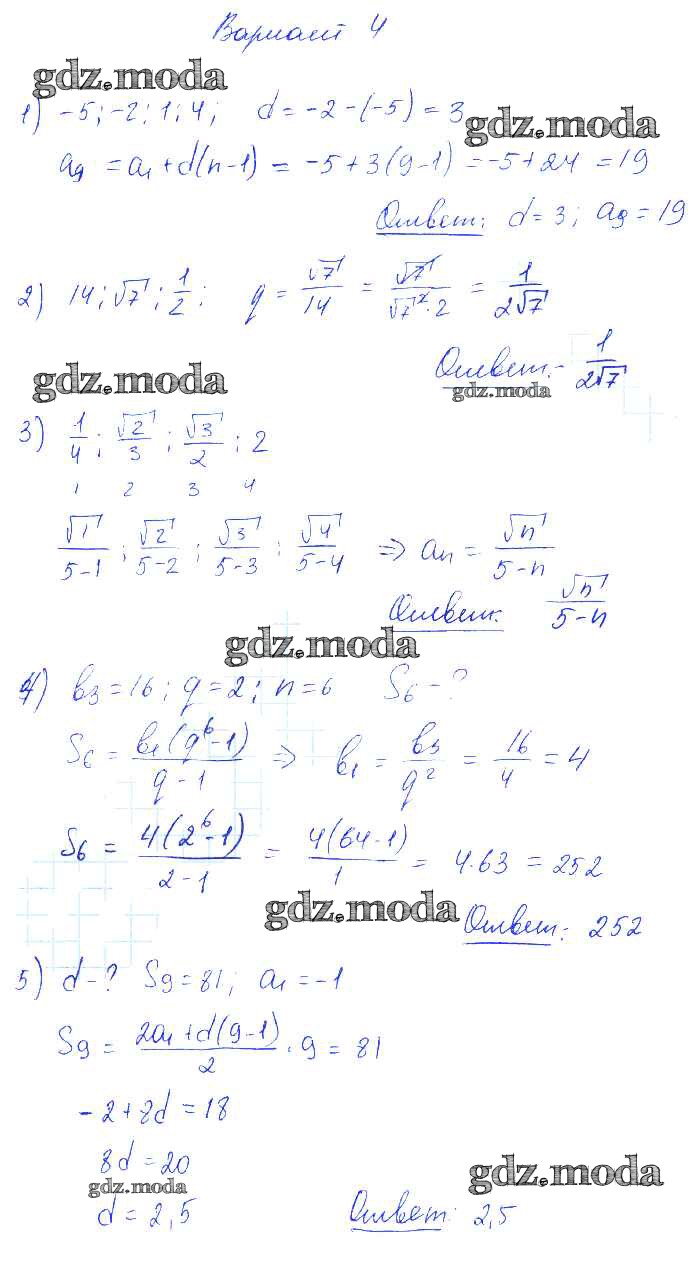 Вариант 4
gdz.moda
1) -5; -2; 1; 4; d = -2-(-5) = 3
gdz.moda
a₉ = a₁ + d(n-1) = -5+3(9-1) = -5+24 = 19
Ответ: d=3; a₉ = 19
2) 14; √7; 1/2; q = √7/14 = √7/(√7²·2) = 1/(2√7)
Ответ: 1/(2√7)
gdz.moda
gdz.moda
3) 1/4; √2/3; √3/2; 2
1 2 3 4
√1/(5-1); √2/(5-2); √3/(5-3); √4/(5-4) => aₙ = √n/(5-n)
Ответ: √n/(5-n)
gdz.moda
4) b₃=16; q=2; n=6 S₆-?
S₆ = b₁(q⁶-1)/(q-1) => b₁ = b₃/q² = 16/4 = 4
S₆ = 4(2⁶-1)/(2-1) = 4(64-1)/1 = 4·63 = 252
gdz.moda
Ответ: 252
5) d-? S₉=81; a₁=-1
S₉ = (2a₁+d(9-1))/2 · 9 = 81
-2+8d=18
8d=20
gdz.moda
gdz.moda
d=2,5 Ответ: 2,5